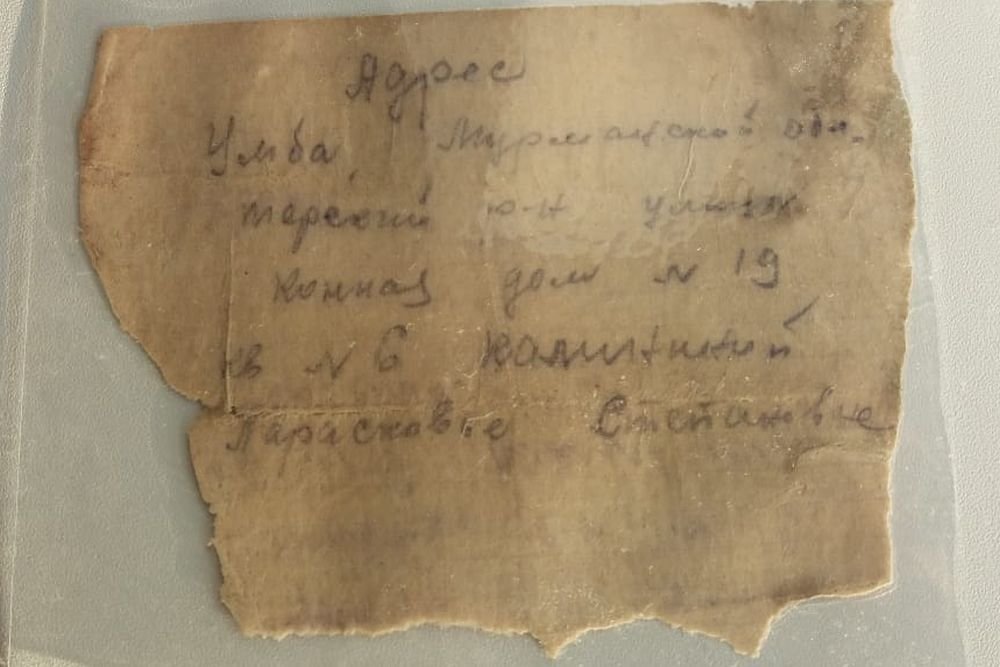 Адрес
Умба, Мурманской обл.
Терский р-н улица
Конная дом N 19
кв N 6 Калининой
Парасковье Степановне